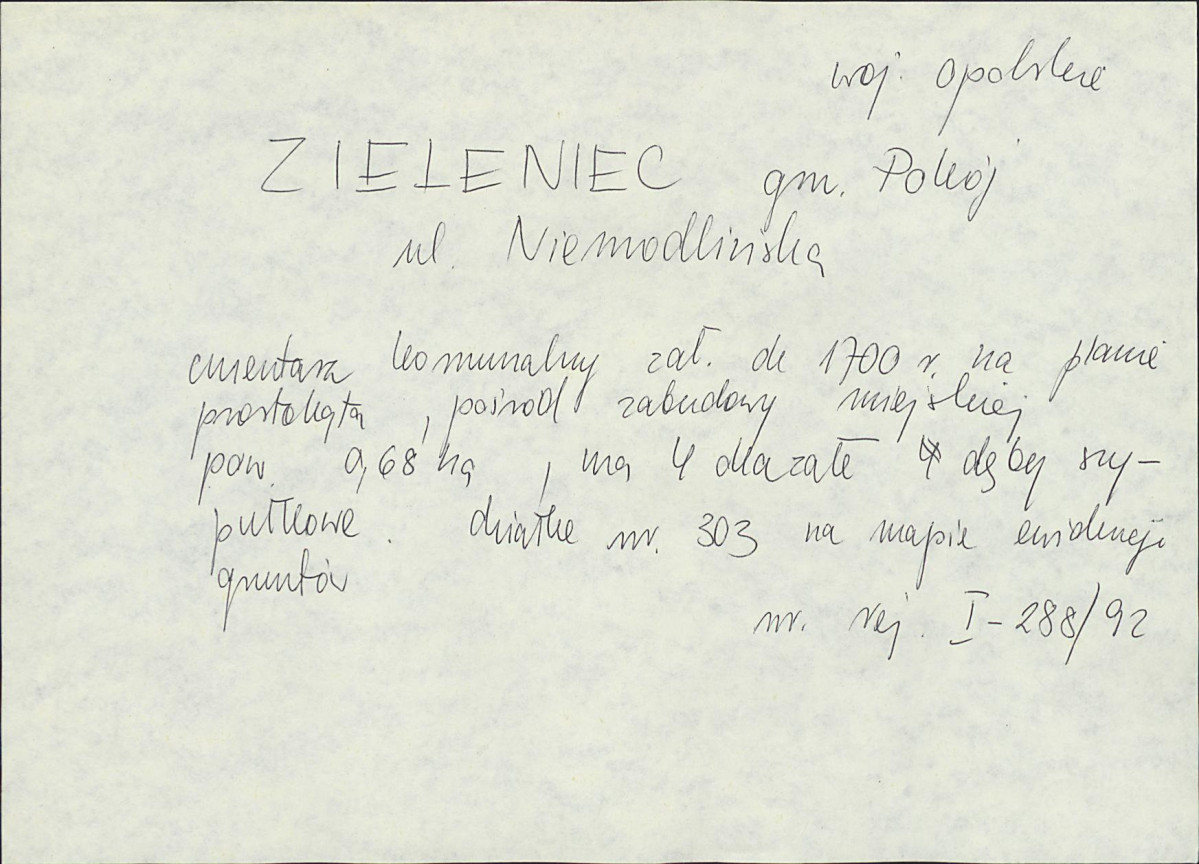 woj. opolskie
ZIELENIEC gm. Pokój
ul. Niemodlińska
cmentarz komunalny zał. ok 1700 r. na planie
prostokąta, pośród zabudowy miejskiej
pow. 0,68 ha, ma 4 okazałe dęby szy-
pułkowe. działka nr. 303 na mapie ewidencji
gruntów
nr. rej. I-288/92